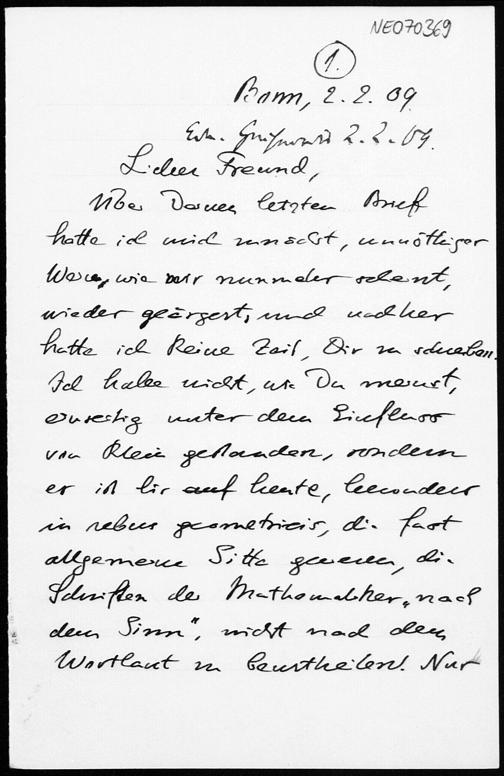 NEO70369
1.
Bonn, 2.2.09.
2.2.09.
Lieber Freund,
Über Deinen letzten Brief
hatte ich mich zunächst, unnöthiger
Weise, wie mir nunmehr scheint,
wieder geärgert, und nachher
hatte ich keine Zeit, Dir zu schreiben.
Ich habe nicht, wie Du meinst,
einseitig unter dem Einfluss
von Klein gestanden, sondern
es ist bis auf heute, besonders
in rebus geometricis, die fast
allgemeine Sitte gewesen, die
Schriften der Mathematiker „nach
dem Sinn", nicht nach dem
Wortlaut zu beurtheilen! Nur